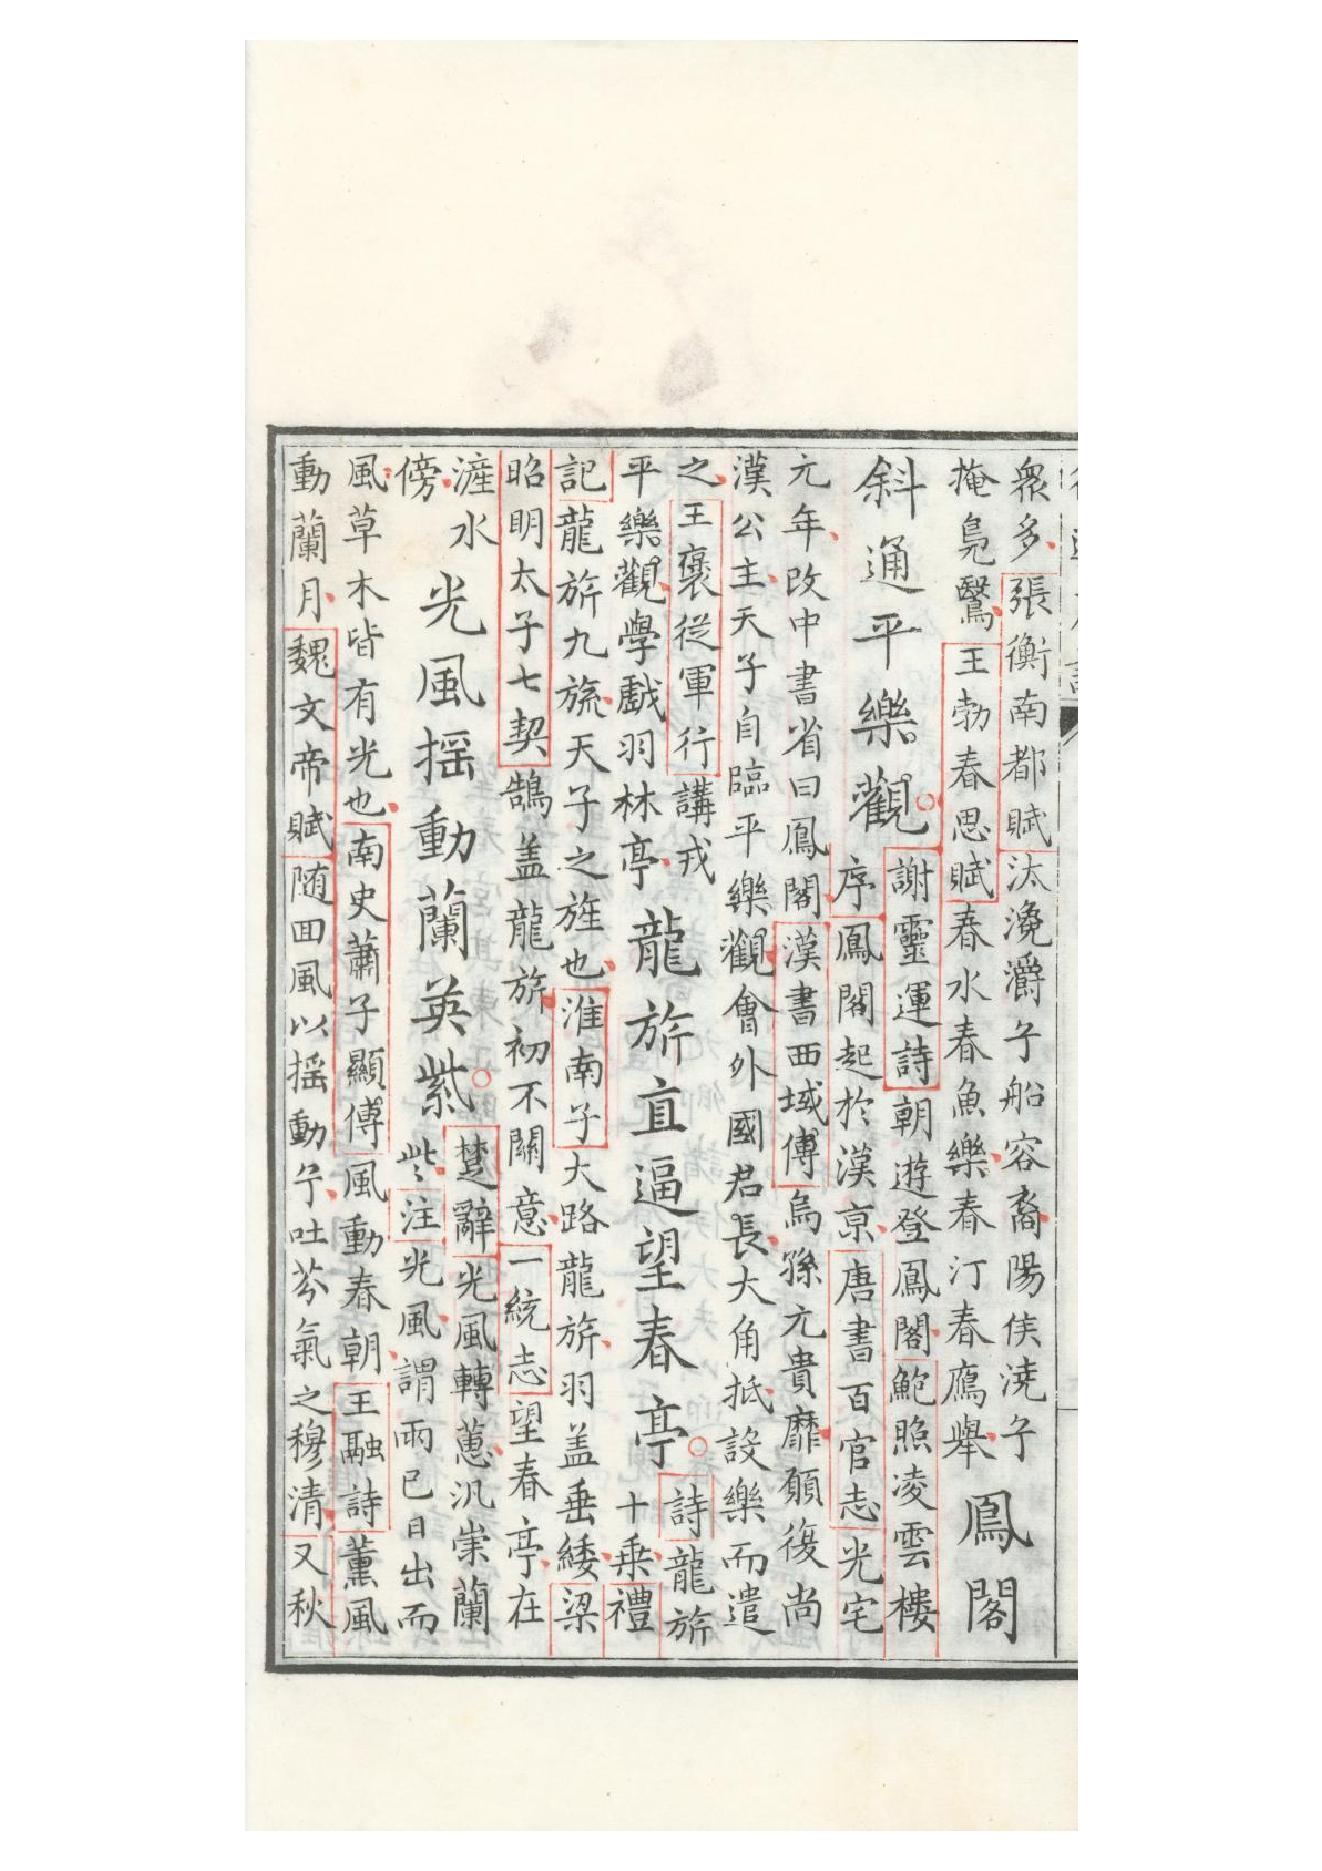 衆多張衡南都賦汰瀺灂兮船容裔陽侯澆兮
掩鳬鷖王勃春思賦春水春魚樂春汀春鴈舉
鳳閣
斜通平樂觀
謝靈運詩朝遊登鳳閣鮑照凌雲樓
序鳳閣起於漢京唐書百官志光宅
元年改中書省曰鳳閣漢書西域傳烏孫元貴靡願復尚
漢公主天子自臨平樂觀會外國君長大角抵設樂而遣
之王褒從軍行講戎
平樂觀學戱羽林亭
龍旂直逼望春亭
詩龍旂
十乗禮
記龍旂九旒天子之旌也淮南子大路龍旂羽盖垂緌梁
昭明太子七契鵠盖龍旂初不關意一統志望春亭在
滻水
傍
光風揺動蘭英紫
楚辭光風轉蕙汎崇蘭
些注光風謂雨已日出而
風草木皆有光也南史蕭子顯傳風動春朝王融詩薫風
動蘭月魏文帝賦随囬風以揺動兮吐芬氣之穆清又秋